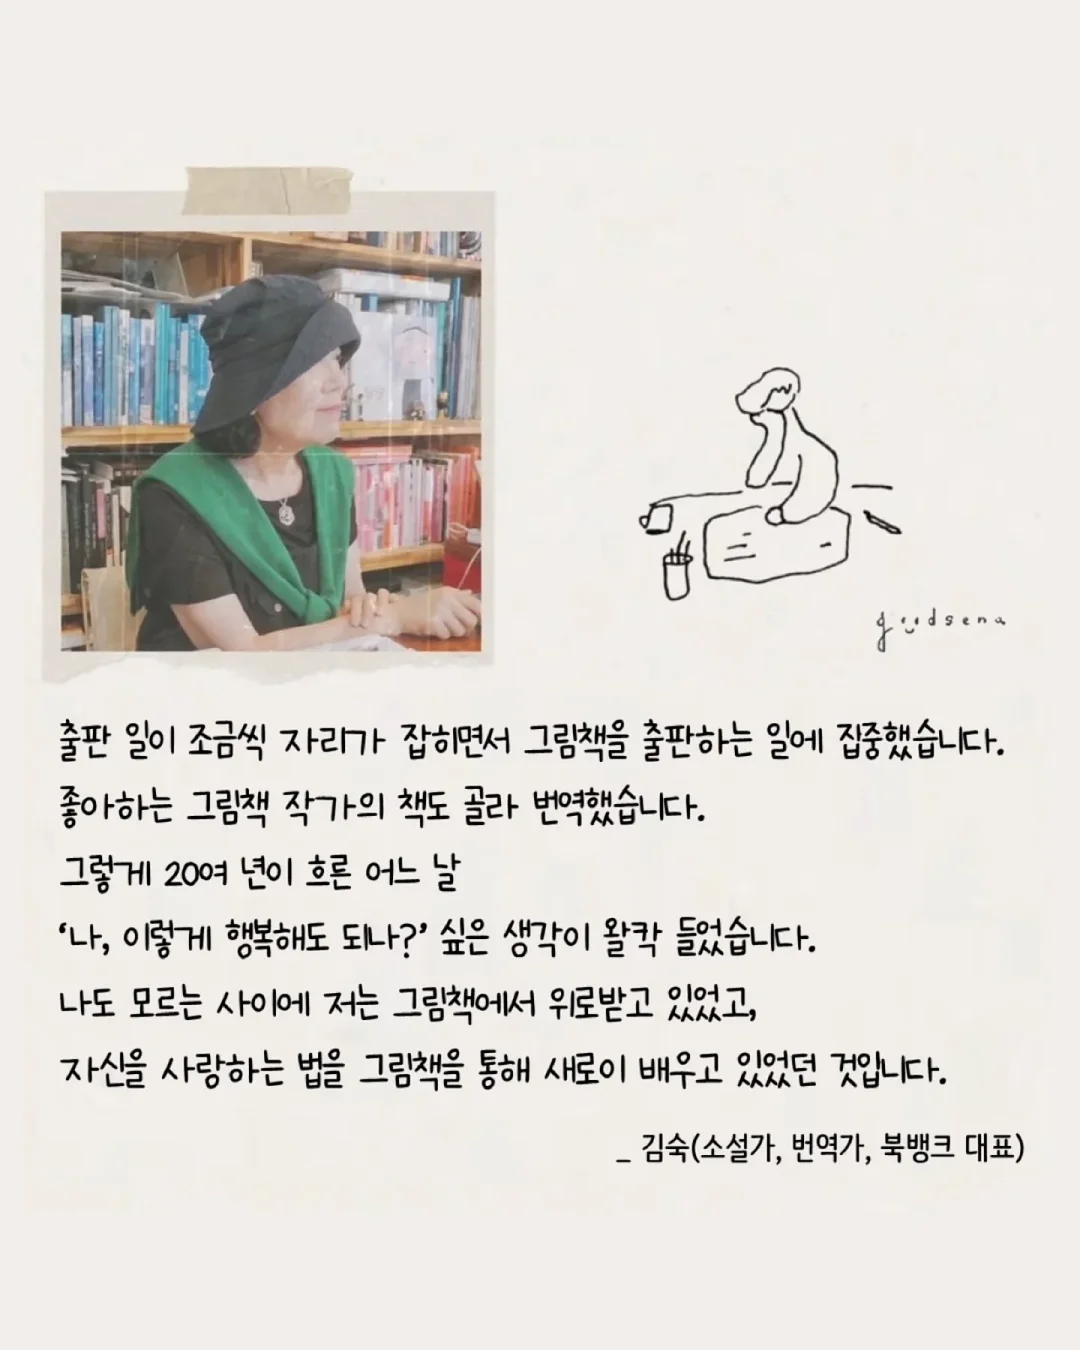 goodsena
출판 일이 조금씩 자리가 잡히면서 그림책을 출판하는 일에 집중했습니다.
좋아하는 그림책 작가의 책도 골라 번역했습니다.
그렇게 20여 년이 흐른 어느 날
‘나, 이렇게 행복해도 되나?’ 싶은 생각이 왈칵 들었습니다.
나도 모르는 사이에 저는 그림책에서 위로받고 있었고,
자신을 사랑하는 법을 그림책을 통해 새로이 배우고 있었던 것입니다.
_ 김숙(소설가, 번역가, 북뱅크 대표)